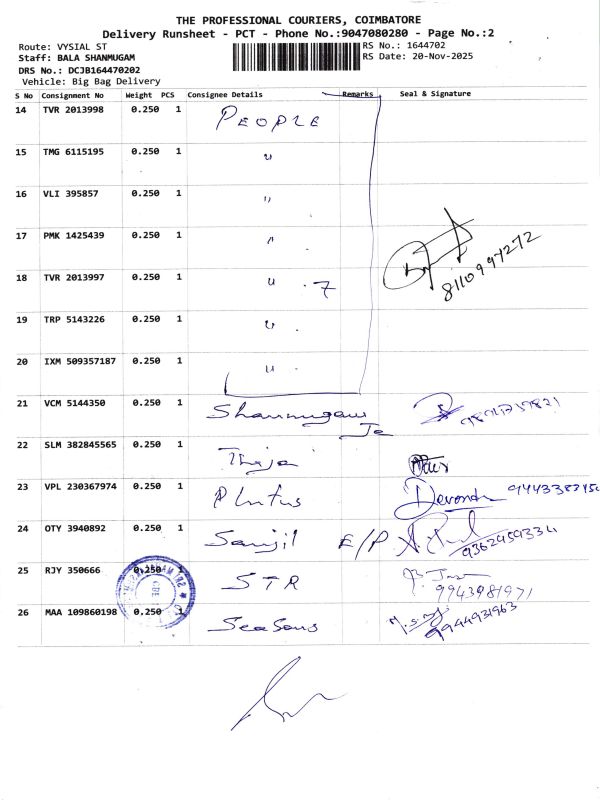 THE PROFESSIONAL COURIERS, COIMBATORE
Delivery Runsheet - PCT - Phone No.:9047080280 - Page No.:2
Route: VYSIAL ST RS No.: 1644702
Staff: BALA SHANMUGAM RS Date: 20-Nov-2025
DRS No.: DCJB164470202
Vehicle: Big Bag Delivery
S No Consignment No Weight PCS Consignee Details Remarks Seal & Signature
14 TVR 2013998 0.250 1 PEOPLE
15 TMG 6115195 0.250 1 "
16 VLI 395857 0.250 1 "
17 PMK 1425439 0.250 1 "
8110997272
18 TVR 2013997 0.250 1 " 7
19 TRP 5143226 0.250 1 "
20 IXM 509357187 0.250 1 "
21 VCM 5144350 0.250 1 Shanmugam
22 SLM 382845565 0.250 1
23 VPL 230367974 0.250 1 Plutus
24 OTY 3940892 0.250 1 Sanjil E/P
25 RJY 350666 0.250 1 STR
9943981971
26 MAA 109860198 0.250 1 Seasons
9944931963